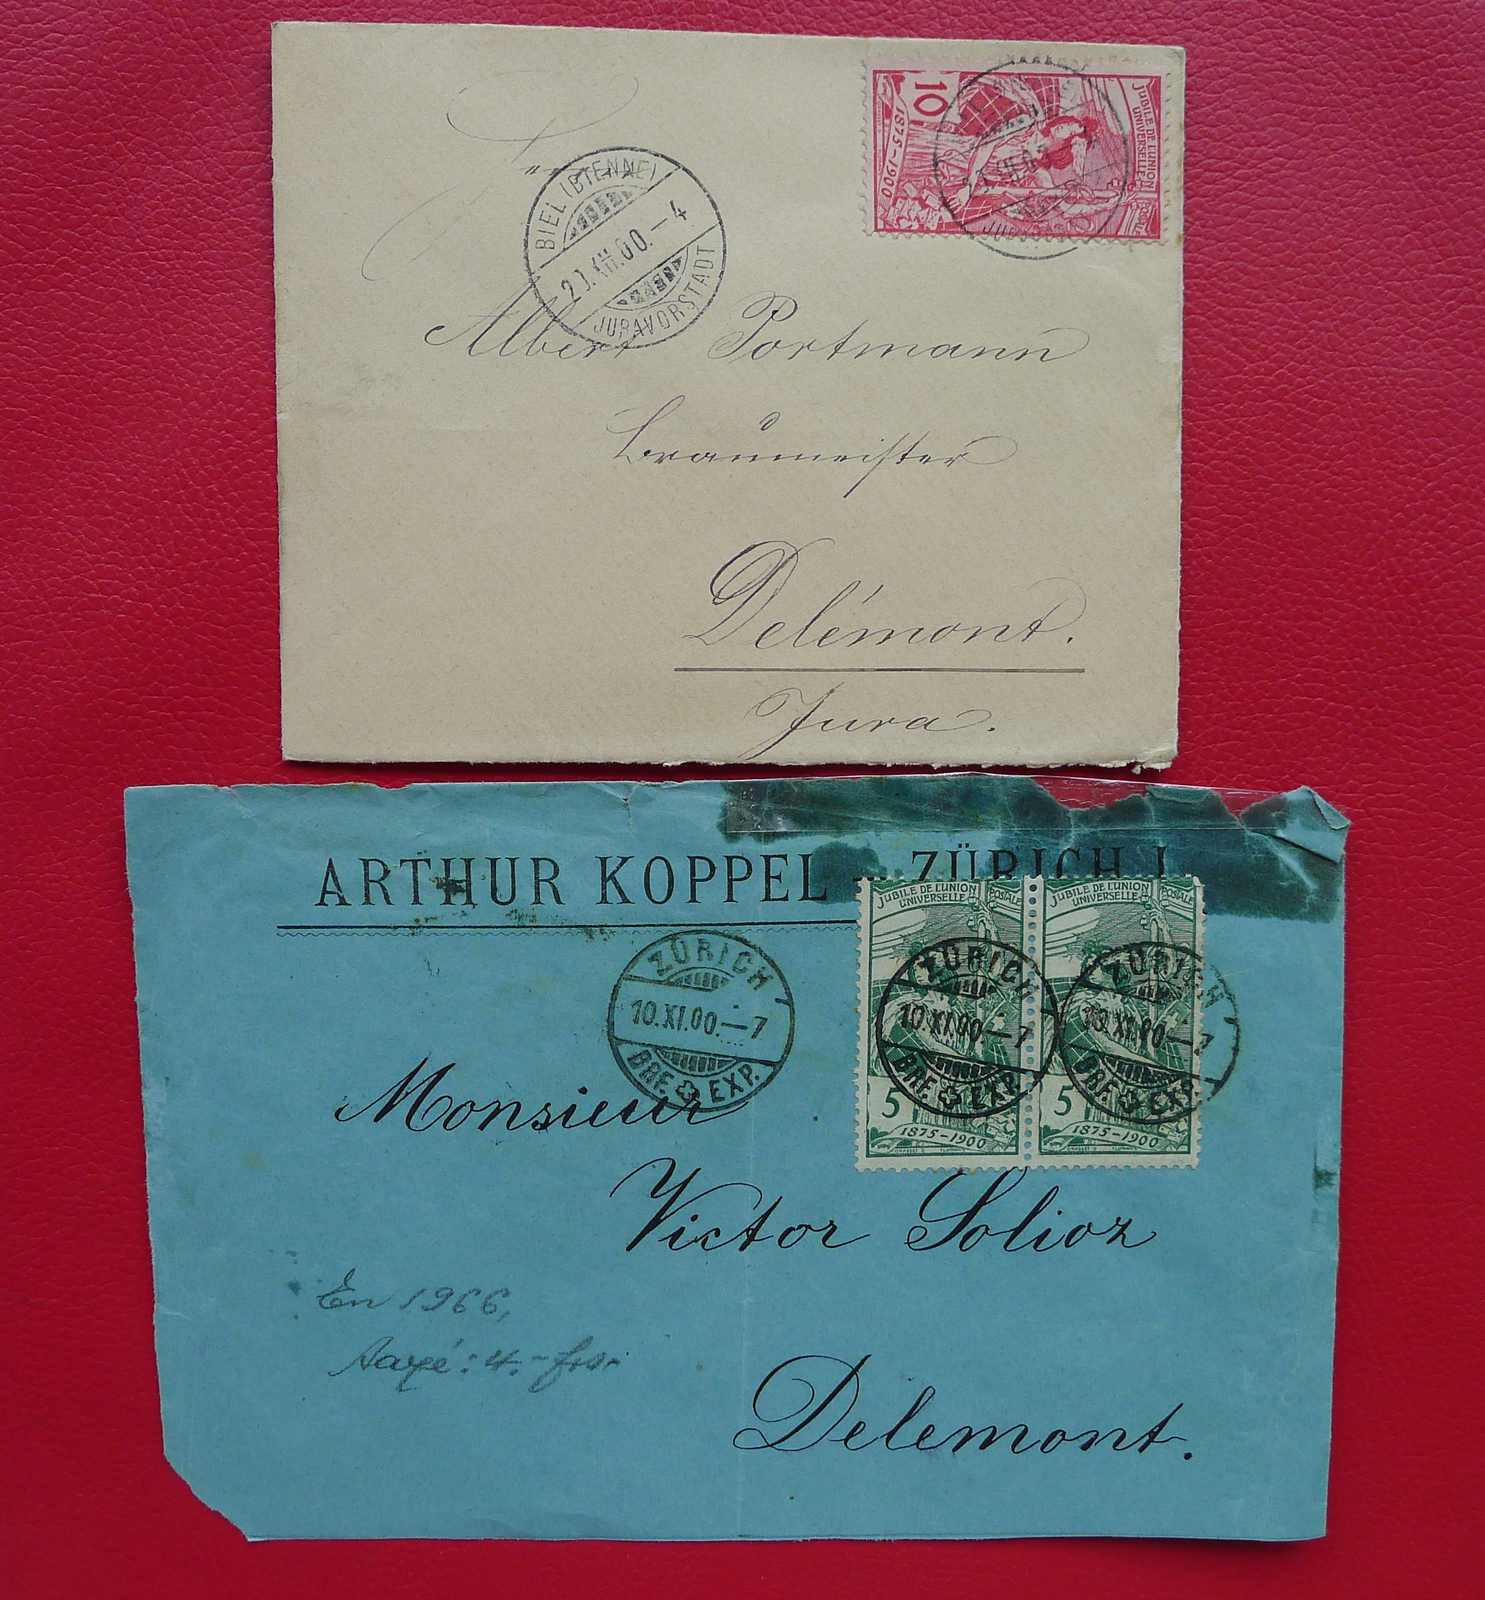 JUBILE DE L'UNION
UNIVERSELLE
POSTALE
10
1875-1900
JURAVORSTADT
BIEL (BIENNE)
XII.00.-4
JURAVORSTADT
Albert Portmann
Braumeister
Delémont.
Jura.
ARTHUR KOPPEL - ZÜRICH I.
JUBILE DE L'UNION
UNIVERSELLE
POSTALE
5
1875-1900
JUBILE DE L'UNION
UNIVERSELLE
POSTALE
5
1875-1900
ZÜRICH
10.XI.00.-7
BRF. EXP.
ZÜRICH
10.XI.00.-7
BRF. EXP.
ZÜRICH
10.XI.00.-7
BRF. EXP.
Monsieur
Victor Solioz
En 1966,
Payé: 4.- frs.
Delemont.